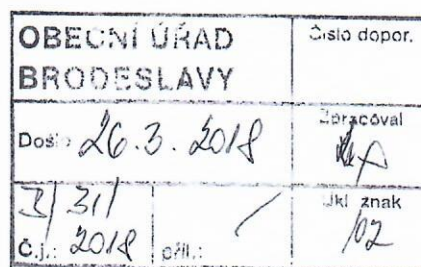 OBECNÍ ÚŘAD
BRODESLAVY
Číslo dopor.
Došlo: 26.3.2018
Zpracoval
31/
Č.j.: 2018
příl.: /
Ukl. znak
102